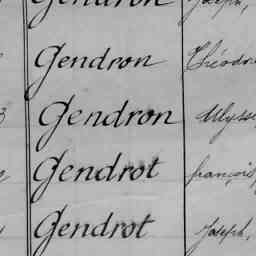 Gendron Joseph,
Gendron Théodor
Gendron Ulysse
Gendrot françois
Gendrot Joseph,